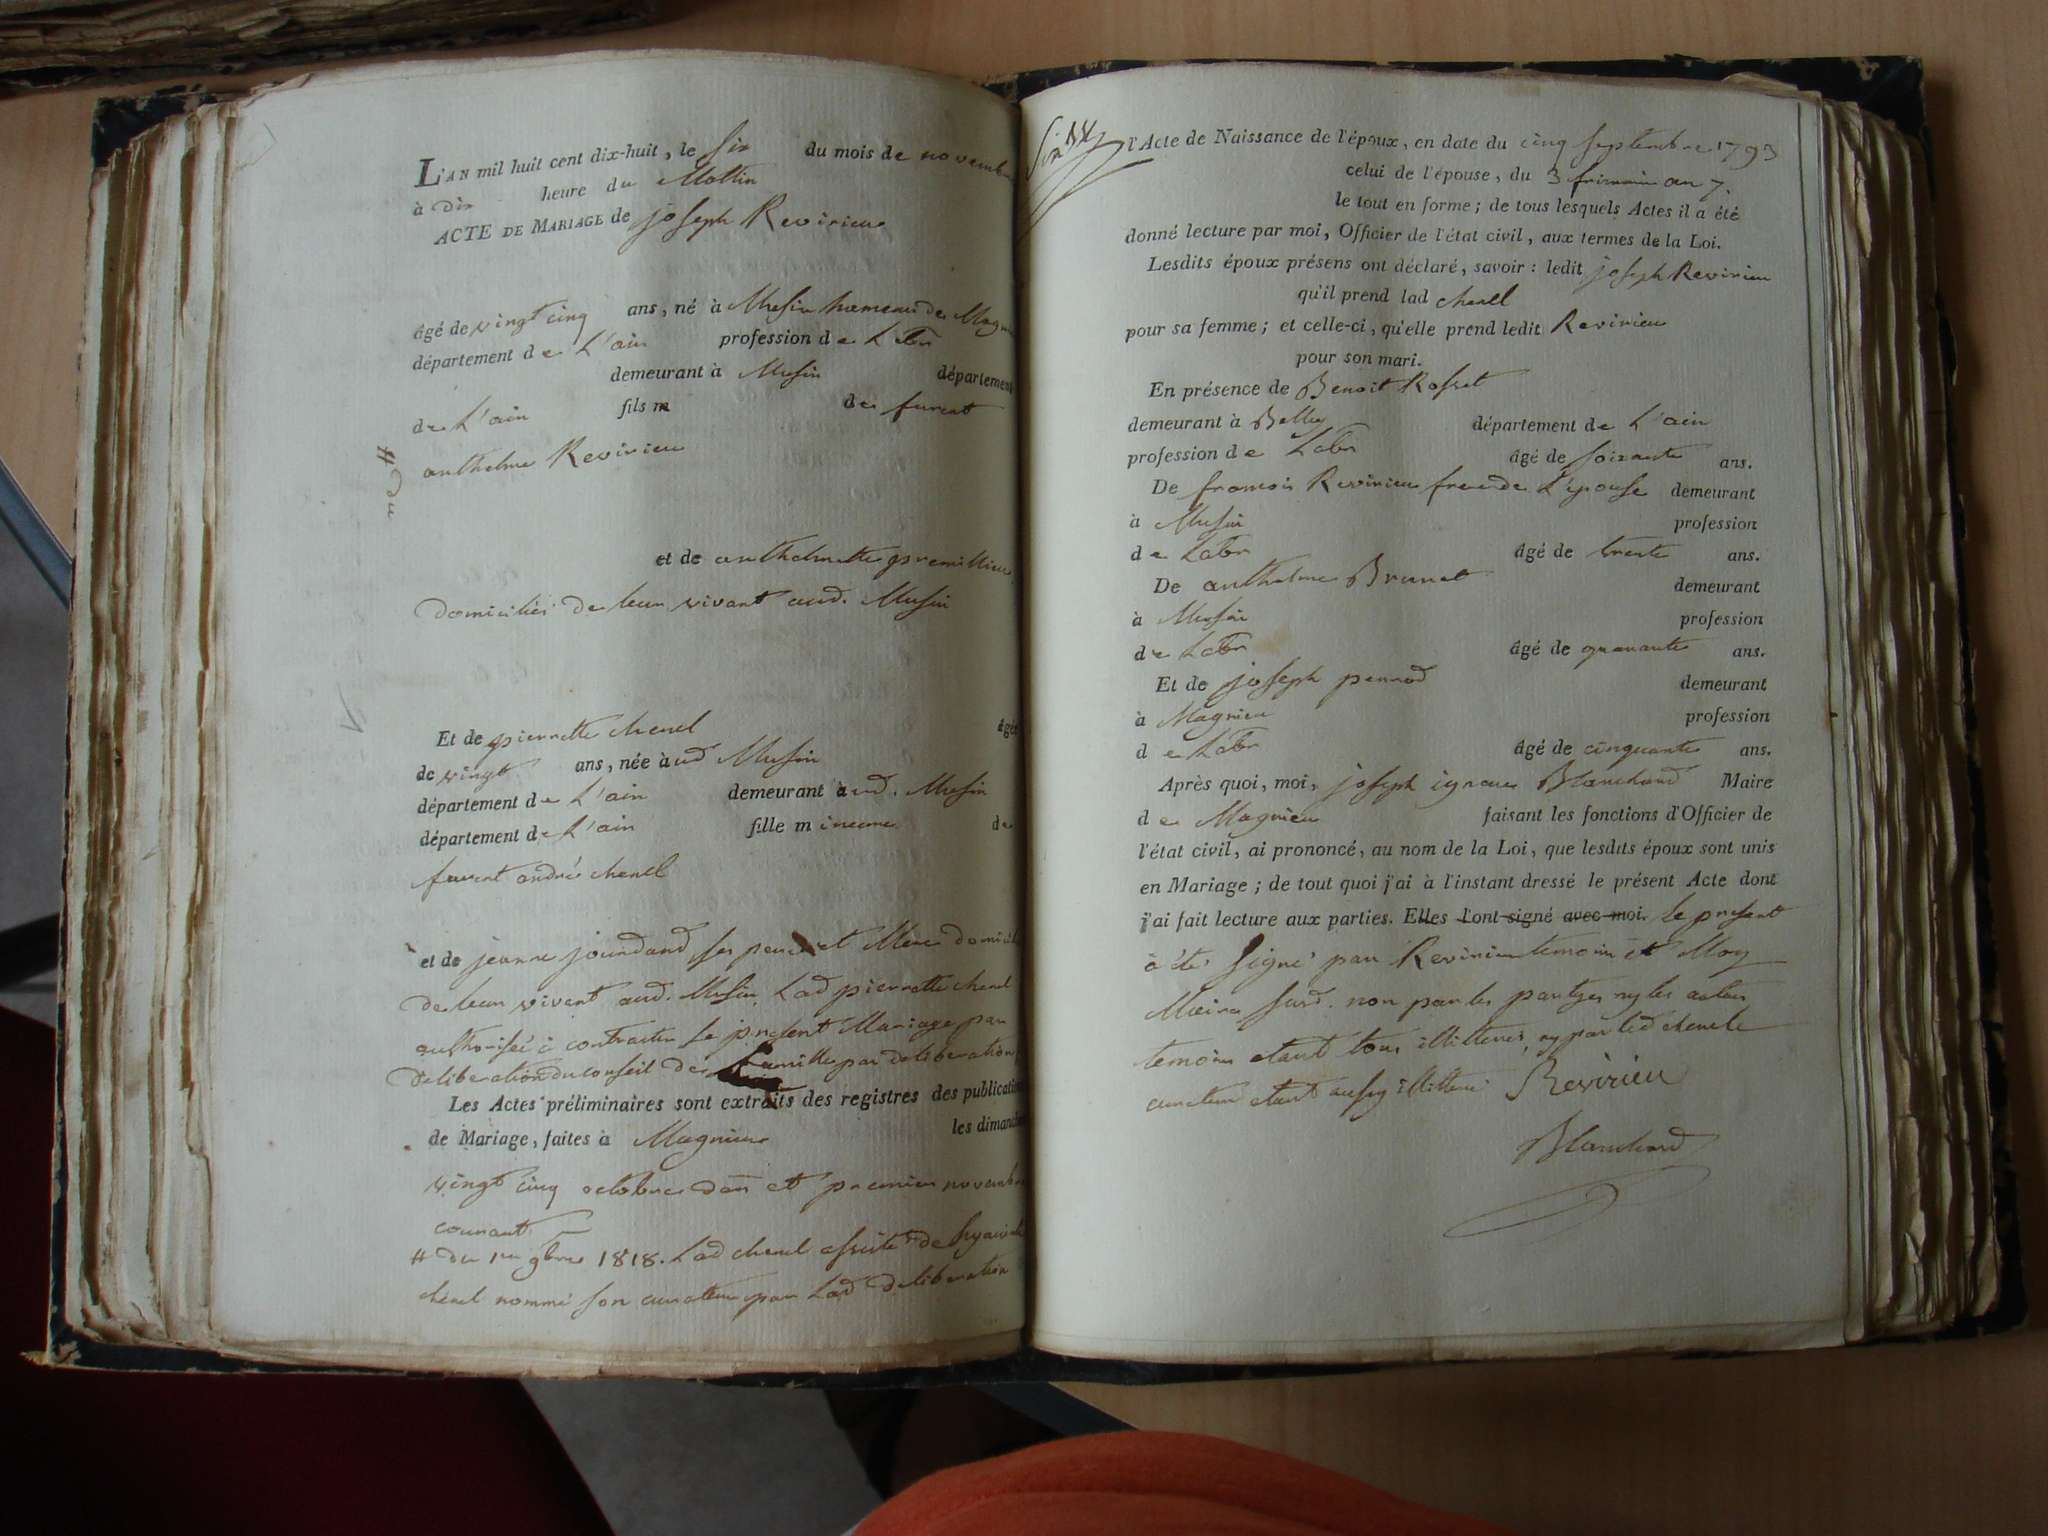 L'AN mil huit cent dix-huit, le six du mois de novembre
à dix heure du Mattin
ACTE DE MARIAGE de joseph Revirieu
âgé de vingt cinq ans, né à Musin hameau de Magnieu
département de L'ain profession de Labr
demeurant à Musin département
de L'ain fils m de furent
anthelme Revirieu
et de anthelmette premillieu
domiciliés de leur vivant aud. Musin
Et de pierrette chenel âgée
de vingt ans, née à ud Musin
département de L'ain demeurant à ud. Musin
département de L'ain fille mineure de
furent andré chenel
et de jeanne jourdand ses peres et Mere domicil
de leur vivant aud. Musin Lad pierrette chenel
authorisée à contracter le present Mariage par
deliberation du conseil de famille par deliberation
# du
Les Actes préliminaires sont extraits des registres des publications
de Mariage, faites à Magnieu les dimanches
vingt cinq octobre et premier novembre
courant
# du 1er 9bre 1818. Lad chenel assistée de hyacinthe
chenel nommé son curateur par Lad deliberation
l'Acte de Naissance de l'époux, en date du cinq septembre 1793
celui de l'épouse, du 3 frimaire an 7.
le tout en forme; de tous lesquels Actes il a été
donné lecture par moi, Officier de l'état civil, aux termes de la Loi.
Lesdits époux présens ont déclaré, savoir: ledit joseph Revirieu
qu'il prend lad chenel
pour sa femme; et celle-ci, qu'elle prend ledit Revirieu
pour son mari.
En présence de Benoit Rosset
demeurant à Belley département de L'ain
profession de Labr âgé de soixante ans.
De francois Revirieu frere de L'epouse demeurant
à Musin profession
de Labr âgé de trente ans.
De anthelme Brunet demeurant
à Musin profession
de Labr âgé de quarante ans.
Et de joseph perrod demeurant
à Magnieu profession
de Labr âgé de cinquante ans.
Après quoi, moi, joseph ignace Blanchard Maire
de Magnieu faisant les fonctions d'Officier de
l'état civil, ai prononcé, au nom de la Loi, que lesdits époux sont unis
en Mariage; de tout quoi j'ai à l'instant dressé le présent Acte dont
j'ai fait lecture aux parties. Elles l'ont signé avec moi. Le present
a été signé par Revirieu temoin et Moy
Maire susd. non par les partyes ny les autres
temoins etant tous illitterés, ny par led chenel
curateur etant aussy illitteré Revirieu
Blanchard